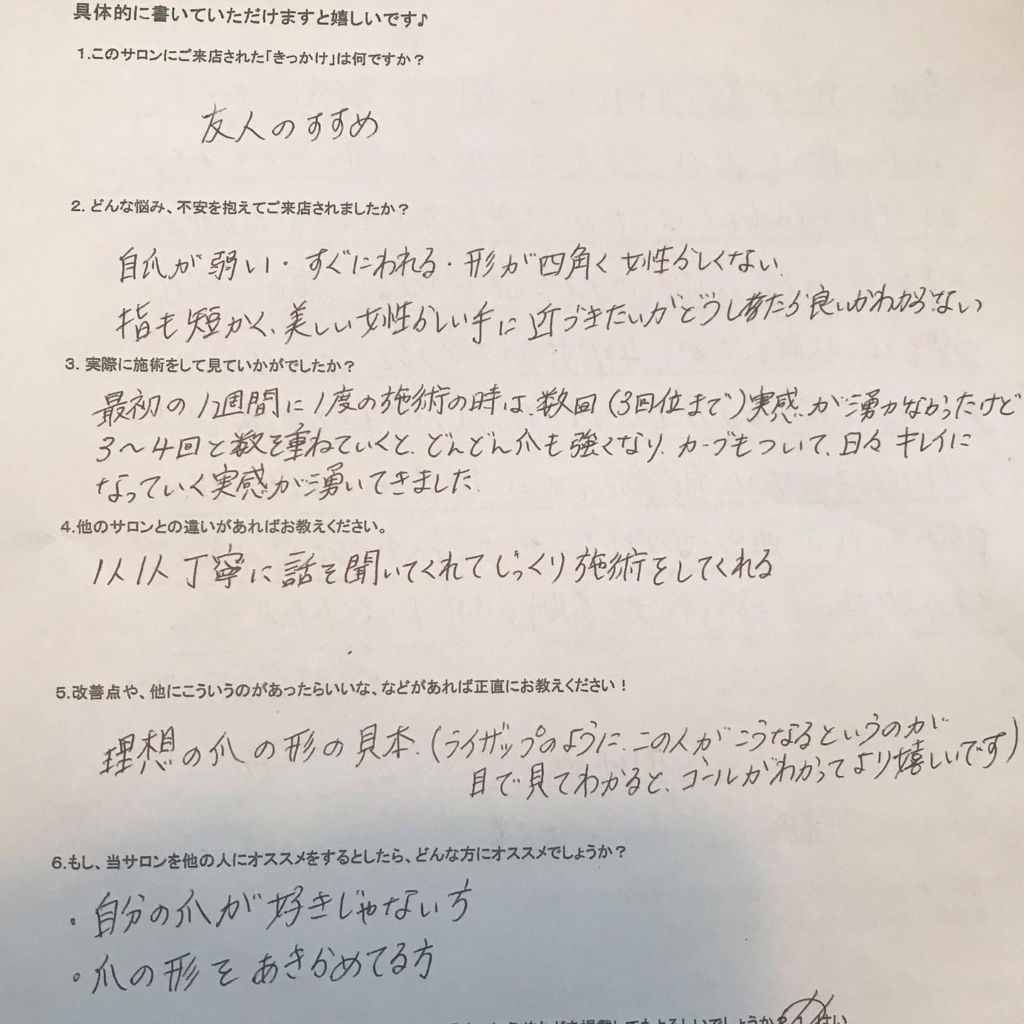 具体的に書いていただけますと嬉しいです♪
1.このサロンにご来店された「きっかけ」は何ですか？
友人のすすめ
2. どんな悩み、不安を抱えてご来店されましたか？
自爪が弱い・すぐにわれる・形が四角く女性らしくない
指も短かく、美しい女性らしい手に近づきたいがどうしたら良いかわからない
3. 実際に施術をして見ていかがでしたか？
最初の1、2週間に1度の施術の時は、数回(3回位まで)実感が湧かなかったけど
3～4回と数を重ねていくと、どんどん爪も強くなり、カーブもついて、日々キレイに
なっていく実感が湧いてきました。
4.他のサロンとの違いがあればお教えください。
1人1人丁寧に話を聞いてくれてじっくり施術をしてくれる
5.改善点や、他にこういうのがあったらいいな、などがあれば正直にお教えください！
理想の爪の形の見本、(ライザップのように、この人がこうなるというのが
目で見てわかると、ゴールがわかってより嬉しいです)
6.もし、当サロンを他の人にオススメをするとしたら、どんな方にオススメでしょうか？
・自分の爪が好きじゃない方
・爪の形をあきらめてる方
掲載してもよろしいでしょうか？ はい